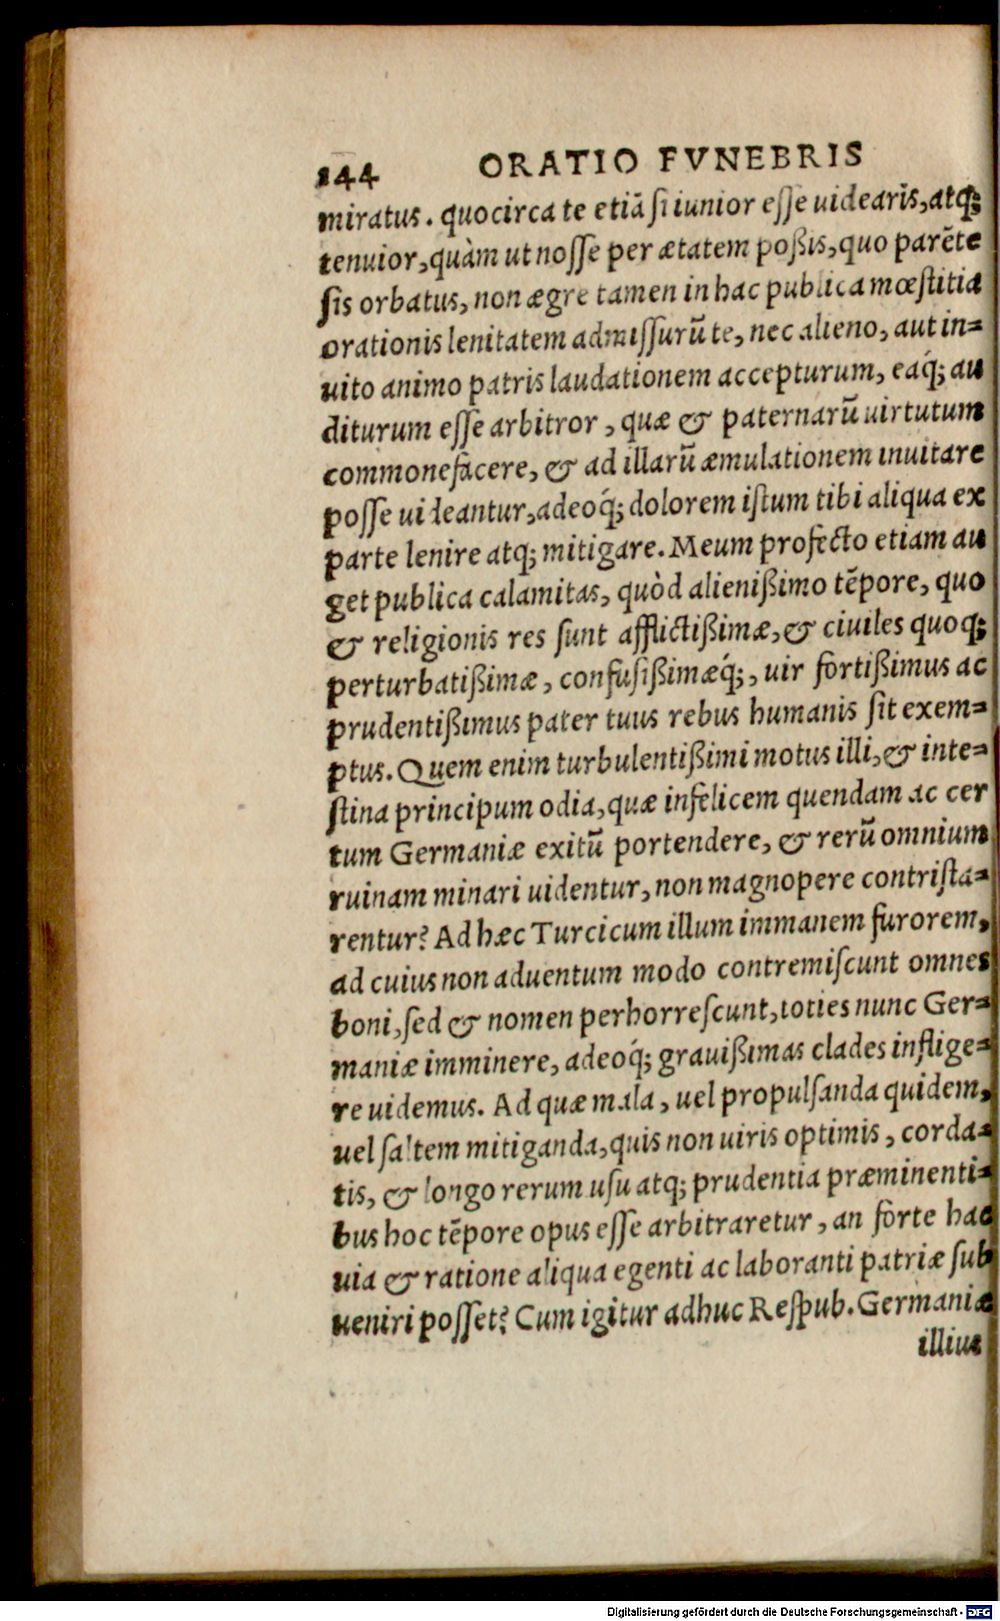 144 ORATIO FVNEBRIS
miratus. quocirca te etiā ſi iunior eſſe uidearis, atq;
tenuior, quàm ut noſſe per ætatem poßis, quo parẽte
ſis orbatus, non ægre tamen in hac publica mœſtitia
orationis lenitatem admiſſurũ te, nec alieno, aut in=
uito animo patris laudationem accepturum, eaq́; au
diturum eſſe arbitror, quæ & paternarũ uirtutum
commonefacere, & ad illarũ æmulationem inuitare
poſſe uideantur, adeoq́; dolorem iſtum tibi aliqua ex
parte lenire atq; mitigare. Meum profecto etiam au
get publica calamitas, quòd alienißimo tẽpore, quo
& religionis res ſunt afflictißimæ, & ciuiles quoq;
perturbatißimæ, confuſißimæq́;, uir fortißimus ac
prudentißimus pater tuus rebus humanis ſit exem=
ptus. Quem enim turbulentißimi motus illi, & inte=
ſtina principum odia, quæ infelicem quendam ac cer
tum Germaniæ exitũ portendere, & rerũ omnium
ruinam minari uidentur, non magnopere contriſta=
rentur? Ad hæc Turcicum illum immanem furorem,
ad cuius non aduentum modo contremiſcunt omnes
boni, ſed & nomen perhorreſcunt, toties nunc Ger=
maniæ imminere, adeoq́; grauißimas clades inflige=
re uidemus. Ad quæ mala, uel propulſanda quidem,
uel ſaltem mitiganda, quis non uiris optimis, corda=
tis, & longo rerum uſu atq; prudentia præminenti=
bus hoc tẽpore opus eſſe arbitraretur, an forte hac
uia & ratione aliqua egenti ac laboranti patriæ ſub
ueniri poſſet? Cum igitur adhuc Reſpub. Germaniæ
illius
Digitalisierung gefördert durch die Deutsche Forschungsgemeinschaft - DFG